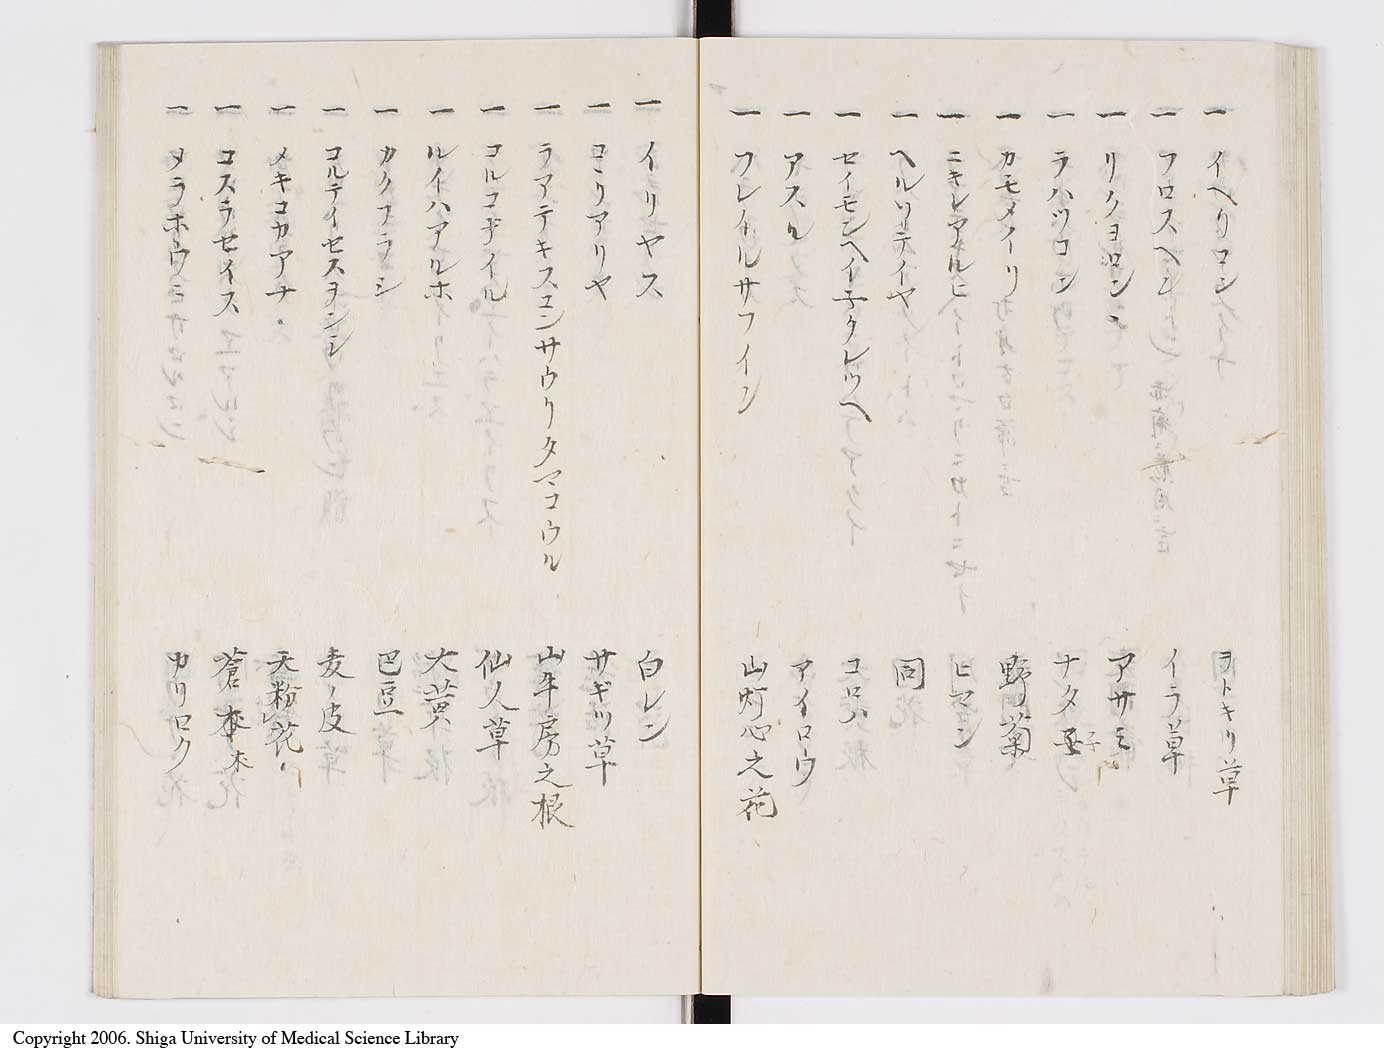 一 イヘリコン ヲトキリ草
一 フロスヘン イラ草
一 リクヨロン アサミ
一 ラハツコン ナタ子
一 カモメイリ 野菊
一 ニキレアルヒ ヒマシ
一 ヘルリテイヤ 同
一 セイモンヘイ子クレツヘ コロハ
一 アスル アイロウ
一 フレイルサフイン 山灯心之花
一 イリヤス 白レン
一 コリアリヤ サギリ草
一 ラアテキスコンサウリタマコウル 山牛房之根
一 コルコデイル 仙人草
一 ルイハアルホ 大黄
一 カクフラシ 巴豆
一 コルテイセスヲンシ 麦ノ皮
一 メキコカアナ 天粉花
一 コスラセイス 蒼朮
一 メラホウラ カリロク
Copyright 2006. Shiga University of Medical Science Library